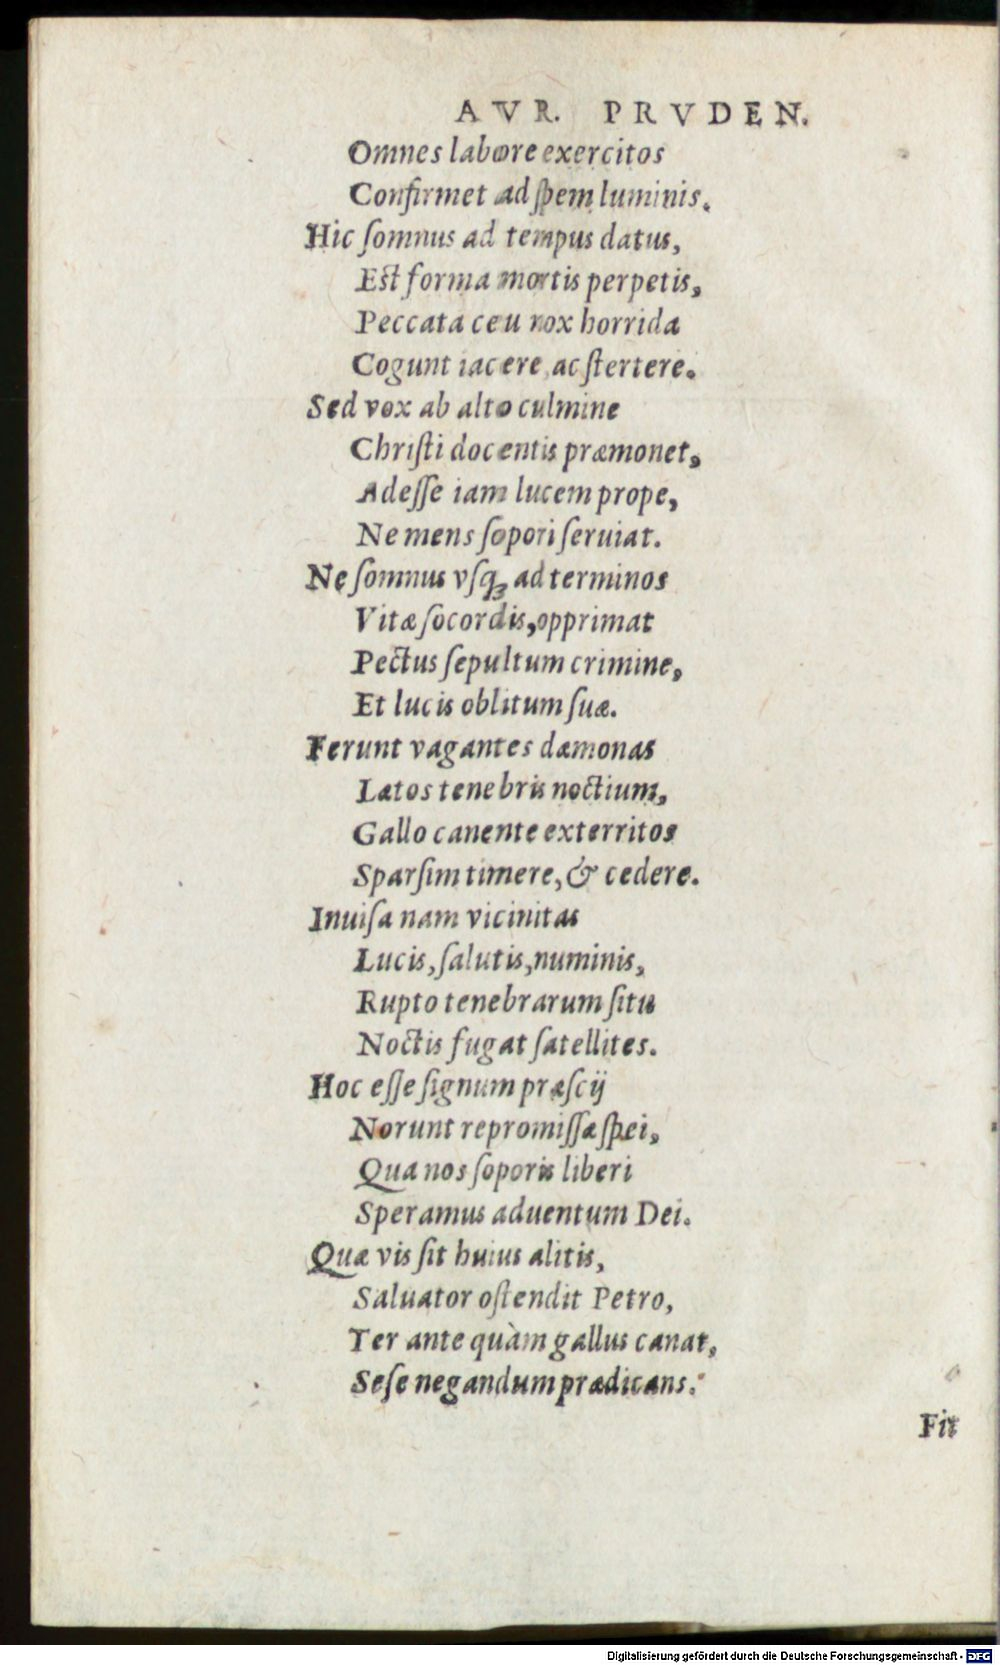 AVR. PRVDEN.
Omnes labore exercitos
Confirmet ad ſpem luminis.
Hic ſomnus ad tempus datus,
Est forma mortis perpetis,
Peccata ceu nox horrida
Cogunt iacere ac ſtertere.
Sed vox ab alto culmine
Chriſti docentis præmonet,
Adeſſe iam lucem prope,
Ne mens ſopori ſeruiat.
Ne ſomnus vſq; ad terminos
Vitæ ſocordis, opprimat
Pectus ſepultum crimine,
Et lucis oblitum ſuæ.
Ferunt vagantes dæmonas
Lætos tenebris noctium,
Gallo canente exterritos
Sparſim timere, & cedere.
Inuiſa nam vicinitas
Lucis, ſalutis, numinis,
Rupto tenebrarum ſitu
Noctis fugat ſatellites.
Hoc eſſe ſignum præſcij
Norunt repromiſſæ ſpei,
Qua nos ſoporis liberi
Speramus aduentum Dei.
Quæ vis ſit huius alitis,
Saluator oſtendit Petro,
Ter ante quàm gallus canat,
Seſe negandum prædicans.
Fit
Digitalisierung gefördert durch die Deutsche Forschungsgemeinschaft - DFG